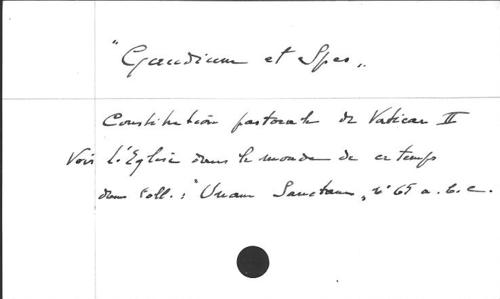 "Gaudium et Spes„
Constitution pastorale de Vatican II
Voir L'Eglise dans le monde de ce temps
dans Coll.: "Unam Sanctam„ n° 65 a.b.c.